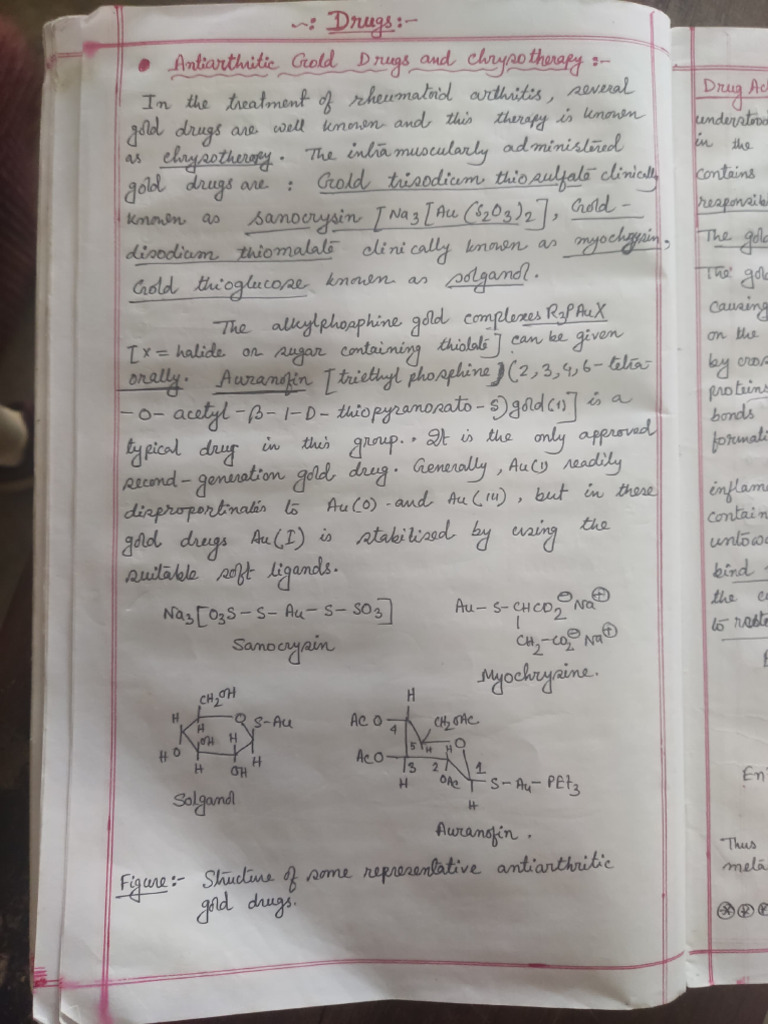 ~: Drugs:-
• Antiarthritic Gold Drugs and chrysotherapy :-
In the treatment of rheumatoid arthritis, several
gold drugs are well known and this therapy is known
as chrysotherapy. The intramuscularly administered
gold drugs are : Gold trisodium thiosulfate clinically
known as sanocrysin [Na3[Au (S2O3)2], Gold-
disodium thiomalate clinically known as myochrysin,
Gold thioglucose known as solganol.
The alkylphosphine gold complexes R3PAuX
[x = halide or sugar containing thiolate] can be given
orally. Auranofin [triethyl phosphine) (2,3,4,6-tetra-
-O- acetyl-β-1-D-thiopyranosato-S) gold(1)] is a
typical drug in this group.. It is the only approved
second-generation gold drug. Generally, Au(I) readily
disproportinates to Au(0) and Au(III), but in these
gold drugs Au(I) is stabilised by using the
suitable soft ligands.
Na3[O3S-S-Au-S-SO3]
Sanocrysin
Au-S-CHCO2⊖Na⊕
CH2-CO2⊖Na⊕
Myochrysine.
CH2OH
H O S-Au
H OH H
HO H
H OH
Solganol
H
AcO 4 CH2OAc
5 H H O
AcO 3 2 1
H OAc S-Au-PEt3
H
Auranofin.
Figure:- Structure of some representative antiarthritic
gold drugs.
Drug Ac
understood
in the
contains
responsibl
The gold
The gol
causing
on the
by cros
proteins
bonds
formati
inflam
contain
untowa
kind
the c
to
En
Thus
meta